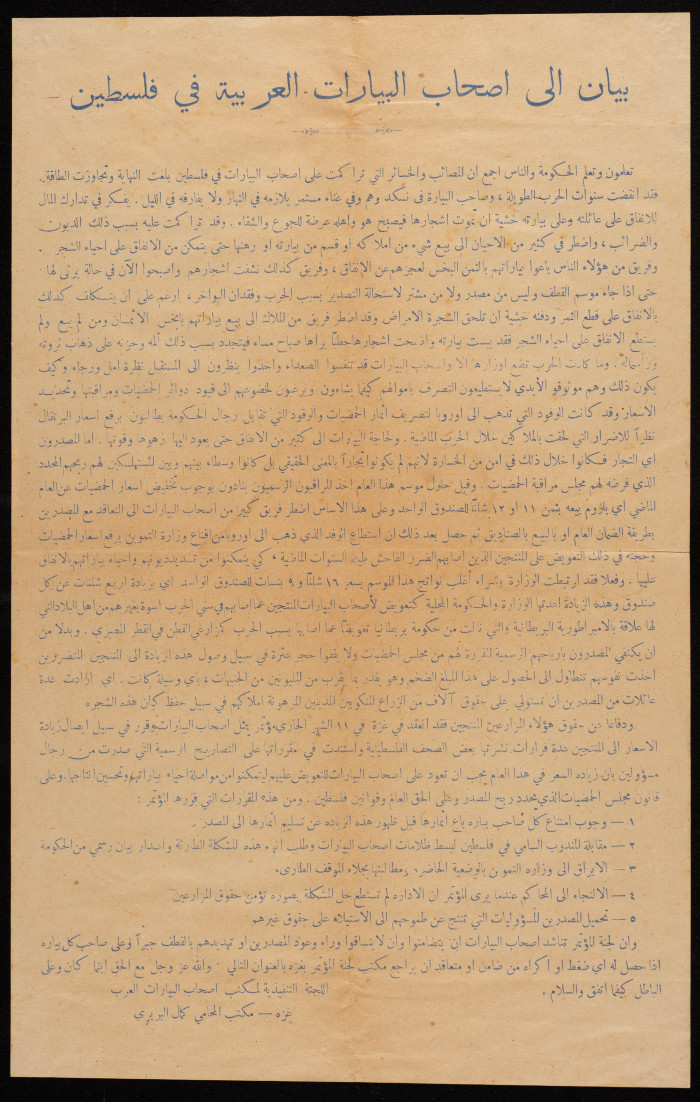 بيان الى اصحاب البيارات العربية في فلسطين
تعلمون وتعلم الحكومة والناس اجمع ان المصائب والخسائر التي تراكمت على اصحاب البيارات في فلسطين بلغت النهاية وتجاوزت الطاقة.
فقد انقضت سنوات الحرب الطويلة، وصاحب البيارة في نكد وهم وفي عناء مستمر يلازمه في النهار ولا يفارقه في الليل. يفكر في تدارك المال
للانفاق على عائلته وعلى بيارته خشية ان تموت اشجارها فيصبح هو واهله عرضة للجوع والشقاء. وقد تراكمت عليه بسبب ذلك الديون
والضرائب، واضطر في كثير من الاحيان الى بيع شيء من املاكه او قسم من بيارته او رهنها حتى يتمكن من الانفاق على احياء الشجر.
وفريق من هؤلاء الناس باعوا بياراتهم بالثمن البخس لعجزهم عن الانفاق، وفريق كذلك نشفت اشجارهم واصبحوا الآن في حالة يرثى لها.
حتى اذا جاء موسم القطف وليس من مصدر ولا من مشتر لاستحالة التصدير بسبب الحرب وفقدان البواخر، ارغم على ان يتكلف كذلك
بالانفاق على قطع الثمر ودفنه خشية ان تلحق الشجرة الامراض وقد اضطر فريق من الملاك الى بيع بياراتهم بابخس الاثمان ومن لم يبع ولم
يستطع الانفاق على احياء الشجر فقد يبست بيارته واضحت اشجارها حطبا يراها صباح مساء فيتجدد بسبب ذلك ألمه وحزنه على ذهاب ثروته
ورأسماله. وما كادت الحرب تضع اوزارها الا واصحاب البيارات قد تنفسوا الصعداء واخذوا ينظرون الى المستقبل نظرة امل ورجاء وكيف
يكون ذلك وهم موثوقو الأيدي لا يستطيعون التصرف باموالهم كيفما يشاءون ويرغبون لخضوعهم الى قيود دوائر الحمضيات ومراقبتها وتحديد
الاسعار وقد كانت الوفود التي تذهب الى اوروبا لتصريف اثمار الحمضيات والوفود التي تقابل رجال الحكومة يطالبون برفع اسعار البرتقال
نظراً للاضرار التي لحقت بالملاكين خلال الحرب الماضية. ولحاجة البيارات الى كثير من الانفاق حتى يعود اليها زهوها وقوتها. اما المصدرون
اي التجار فكانوا خلال ذلك في امن من الخسارة لانهم لم يكونوا تجاراً بالمعنى الحقيقي بل كانوا وسطاء بينهم وبين المستهلكين لهم ربحهم المحدد
الذي فرضه لهم مجلس مراقبة الحمضيات. وقبل حلول موسم هذا العام اخذ المراقبون الرسميون ينادون بوجوب تخفيض اسعار الحمضيات عن العام
الماضي اي بلزوم بيعه بثمن ١١ او ١٢ شلنا للصندوق الواحد وعلى هذا الاساس اضطر فريق كبير من اصحاب البيارات الى التعاقد مع المصدرين
بطريقة الضمان العام او بالبيع بالصناديق ثم حصل بعد ذلك ان استطاع الوفد الذي ذهب الى اوروبا من اقناع وزارة التموين برفع اسعار الحمضيات
وحجته في ذلك التعويض على المنتجين الذين اصابهم الضرر الفاحش طيلة السنوات الماضية، كي يتمكنوا من تسديد ديونهم واحياء بياراتهم بالانفاق
عليها. وفعلا فقد ارتبطت الوزارة بشراء اغلب نواتج هذا الموسم بسعر ١٦ شلنا و ٩ بنسات للصندوق الواحد اي بزيادة اربع شلنات عن كل
صندوق وهذه الزيادة اعدتها الوزارة والحكومة المحلية كتعويض لأصحاب البيارات المنتجين عما اصابهم في سني الحرب اسوة بغيرهم من اهل البلاد التي
لها علاقة بالامبراطورية البريطانية والتي نالت من حكومة بريطانيا تعويضا عما اصابها بسبب الحرب كمزارعي القطن في القطر المصري. وبدلا من
ان يكتفي المصدرون بارباحهم الرسمية المقررة لهم من مجلس الحمضيات ولا يقفوا حجر عثرة في سبيل وصول هذه الزيادة الى المنتجين المتضررين
اخذت نفوسهم تتطاول الى الحصول على هذا المبلغ الضخم وهو يقدر بما يقرب من المليونين من الجنيهات، بأي وسيلة كانت. اي ارادت عدة
عائلات من المصدرين ان تستولي على حقوق آلاف من الزراع المنكوبين المدينين المرهونة املاكهم في سبيل حفظ كيان هذه الشجره
ودفاعا عن حقوق هؤلاء المزارعين المنتجين فقد انعقد في غزة في ١١ الشهر الجاري مؤتمر يمثل اصحاب البيارات وقرر في سبيل ايصال زيادة
الاسعار الى المنتجين عدة قرارات نشرتها بعض الصحف الفلسطينية واستندت في مقرراتها على التصاريح الرسمية التي صدرت من رجال
مسؤولين بان زيادة السعر في هذا العام يجب ان تعود على اصحاب البيارات للتعويض عليهم ليتمكنوا من مواصلة احياء بياراتهم وتحسين انتاجها. وعلى
قانون مجلس الحمضيات الذي يحدد ربح المصدر وعلى الحق العام وقوانين فلسطين. ومن هذه المقررات التي قررها المؤتمر:
١ — وجوب امتناع كل صاحب بياره باع اثمارها قبل ظهور هذه الزياده عن تسليم اثمارها الى المصدر.
٢ — مقابلة المندوب السامي في فلسطين لبسط ظلامات اصحاب البيارات وطلب انهاء هذه المشكلة الطارئة واصدار بيان رسمي من الحكومة
٣ — الابراق الى وزاره التموين بالوضعية الحاضره ومطالبتها بجلاء الموقف الطارىء.
٤ — الالتجاء الى المحاكم عندما يرى المؤتمر ان الاداره لم تستطع حل المشكلة بصوره تؤمن حقوق المزارعين
٥ — تحميل المصدرين المسؤوليات التي تنتج عن طموحهم الى الاستيلاء على حقوق غيرهم
وان لجنة المؤتمر تناشد اصحاب البيارات ان يتضامنوا وان لا ينساقوا وراء وعود المصدرين او تهديدهم بالقطف جبراً وعلى صاحب كل بياره
اذا حصل له اي ضغط او اكراه من ضامن او متعاقد ان يراجع مكتب لجنة المؤتمر بغزه بالعنوان التالي. والله عز وجل مع الحق انما كان وعلى
الباطل كيفما اتفق والسلام.
اللجنة التنفيذية لمكتب اصحاب البيارات العرب
غزه — مكتب المحامي كمال البربري